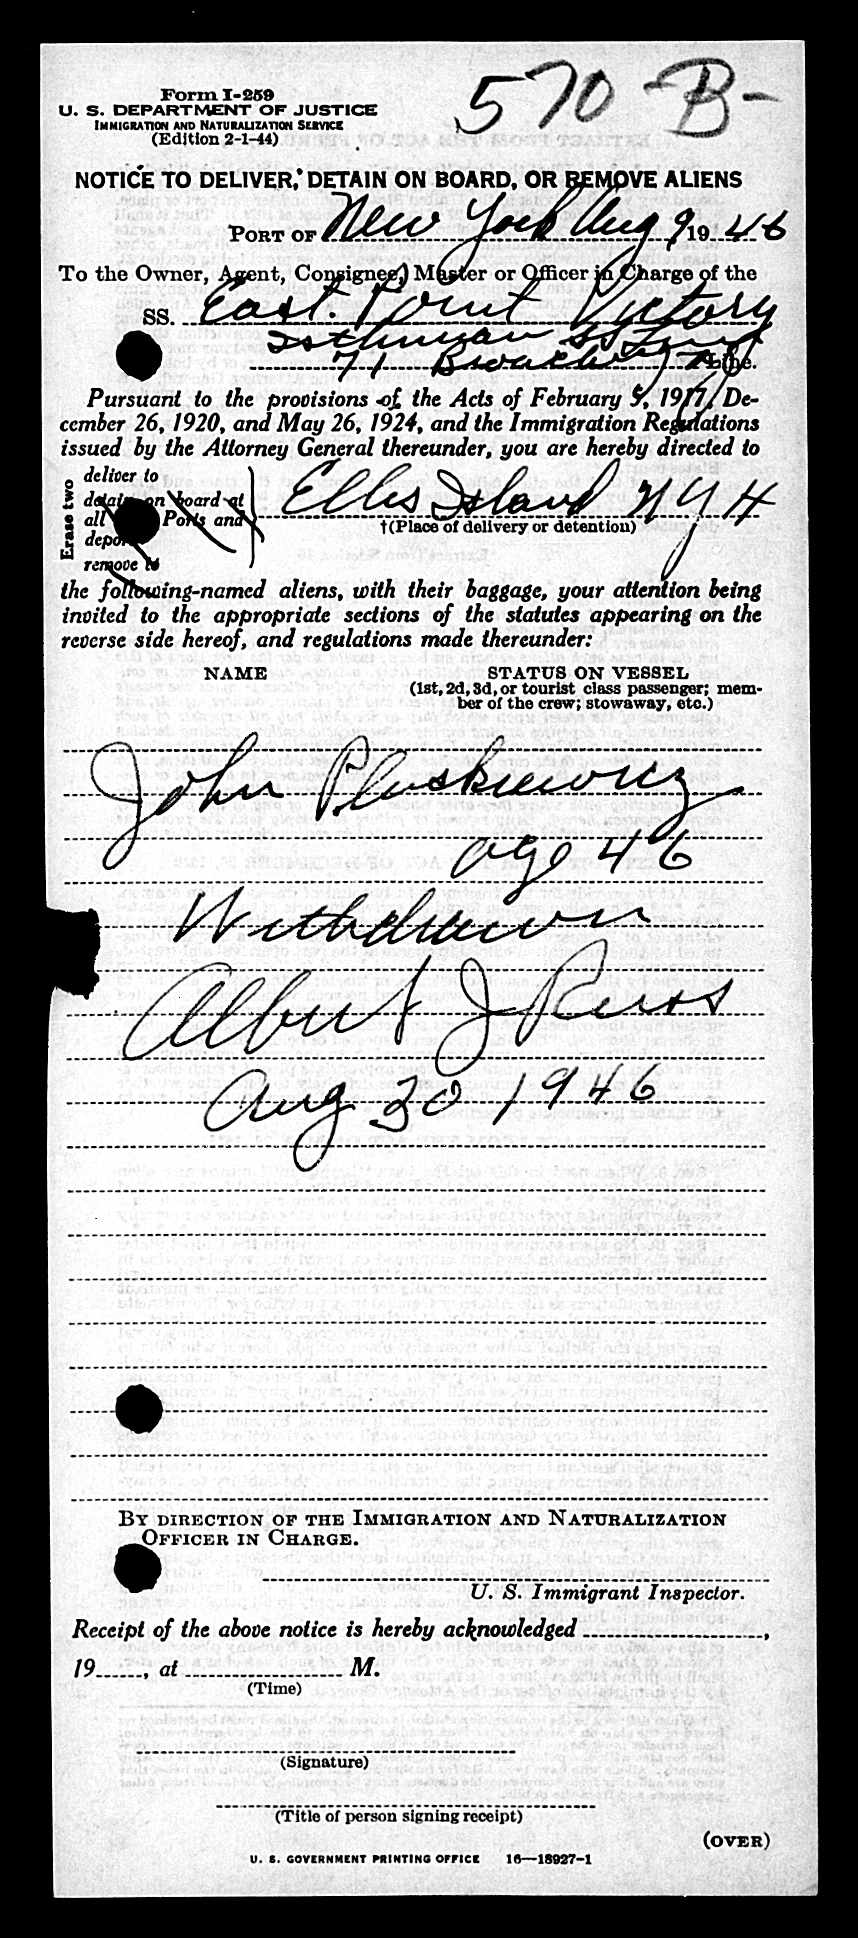 570 -B-
Form I-259
U. S. DEPARTMENT OF JUSTICE
IMMIGRATION AND NATURALIZATION SERVICE
(Edition 2-1-44)
NOTICE TO DELIVER, DETAIN ON BOARD, OR REMOVE ALIENS
PORT OF New York Aug 9, 1946
To the Owner, Agent, Consignee, Master or Officer in Charge of the
SS. East Point Victory
Isthmian SS Line
71 Broadway Line.
Pursuant to the provisions of the Acts of February 5, 1917, De-
cember 26, 1920, and May 26, 1924, and the Immigration Regulations
issued by the Attorney General thereunder, you are hereby directed to
Erase two
deliver to
detain on board at
all Ports and
deport
remove to
Ellis Island NYH
†(Place of delivery or detention)
the following-named aliens, with their baggage, your attention being
invited to the appropriate sections of the statutes appearing on the
reverse side hereof, and regulations made thereunder:
NAME STATUS ON VESSEL
(1st, 2d, 3d, or tourist class passenger; mem-
ber of the crew; stowaway, etc.)
John Pluskiewicz
age 46
Withdrawn
Albert J Russ
Aug 30 1946
BY DIRECTION OF THE IMMIGRATION AND NATURALIZATION
OFFICER IN CHARGE.
U. S. Immigrant Inspector.
Receipt of the above notice is hereby acknowledged ,
19 , at M.
(Time)
(Signature)
(Title of person signing receipt)
(OVER)
U. S. GOVERNMENT PRINTING OFFICE 16—18927-1